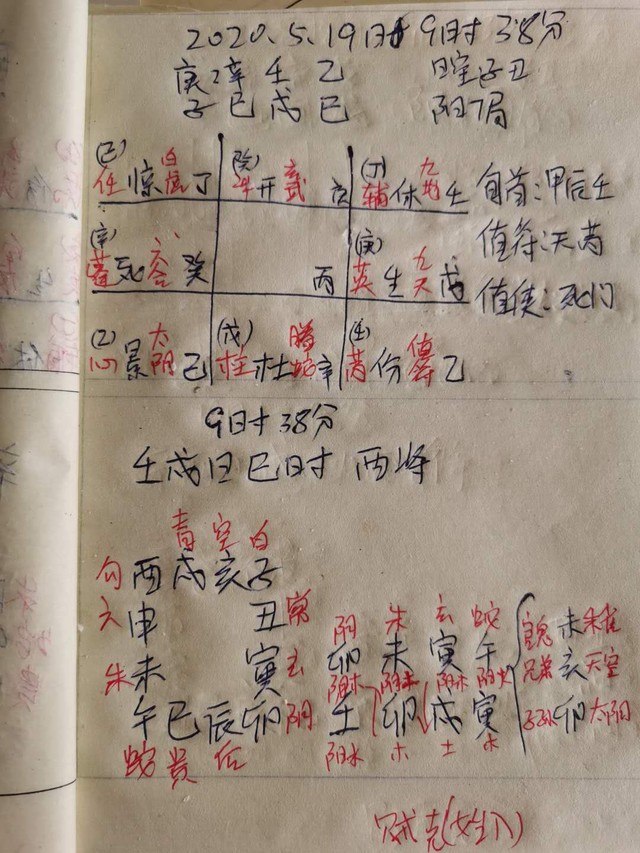 2020.5.19日 9时38分
庚 辛 壬 乙 日空子丑
子 巳 戌 巳 阳7局
(己) (癸) (丁)
任 惊 白虎 丁 开 玄武 庚 辅 休 九地 壬 旬首:甲辰壬
(辛) (庚) 值符:天芮
死 六合 癸 丙 英 生 九天 戊 值使:死门
(乙) (戊) (壬)
心 景 太阴 己 柱 杜 腾蛇 辛 芮 伤 值符 乙
9时38分
壬戌日巳时 酉将
青 空 白
勾 酉 戌 亥 子
六 申 丑 常 阴 朱 玄 蛇 未 朱雀
朱 未 寅 玄 卯 未 寅 午 兄弟 亥 天空
午 巳 辰 卯 阴 壬 卯 戌 寅 子孙 卯 太阴
蛇 贵 后 阳水 木 土 木